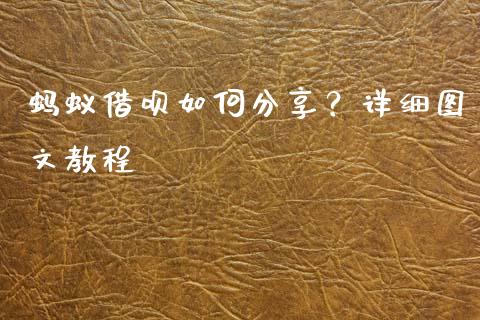 蚂蚁借呗如何分享？详细图
文教程